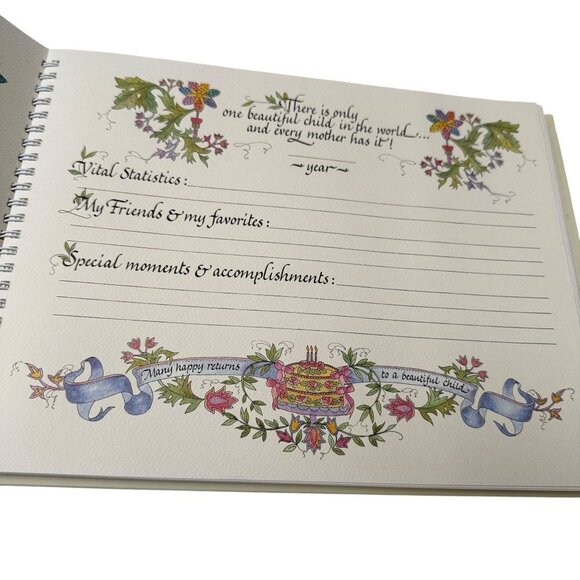 There is only
one beautiful child in the world....
and every mother has it!
~year~
Vital Statistics:
My Friends & my favorites:
Special moments & accomplishments:
Many happy returns to a beautiful child